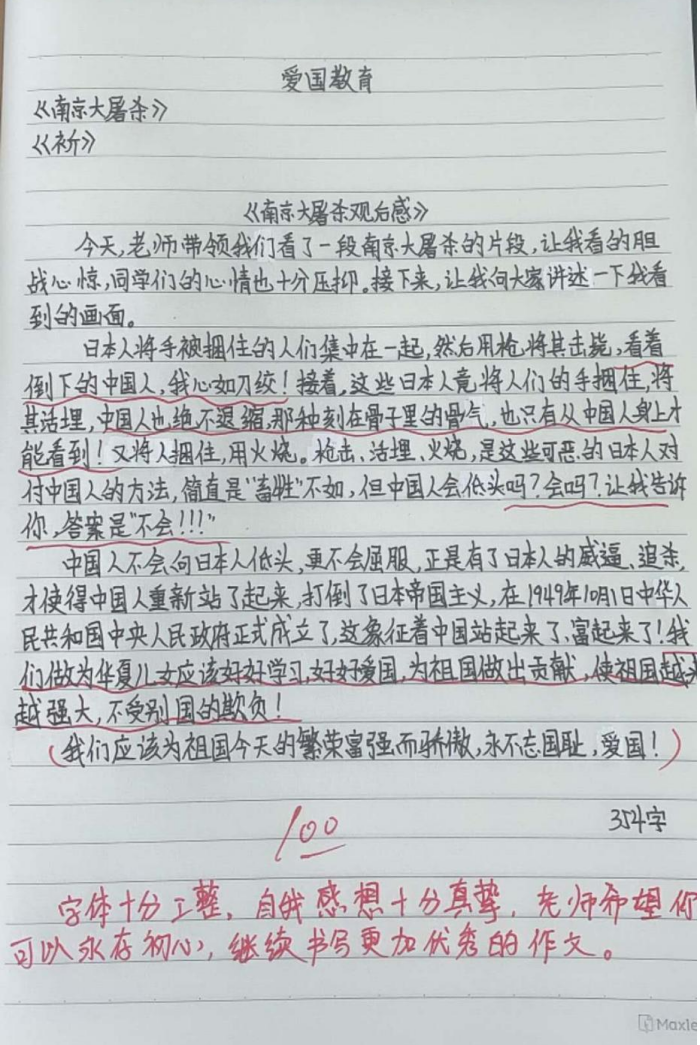 爱国教育
《南京大屠杀》
《祈》
《南京大屠杀观后感》
今天,老师带领我们看了一段南京大屠杀的片段,让我看的胆
战心惊,同学们的心情也十分压抑。接下来,让我向大家讲述一下我看
到的画面。
日本人将手被捆住的人们集中在一起,然后用枪,将其击毙,看着
倒下的中国人,我心如刀绞!接着,这些日本人竟将人们的手捆住,将
其活埋,中国人也绝不退缩,那种刻在骨子里的骨气,也只有从中国人身上才
能看到!又将人捆住,用火烧。枪击、活埋、火烧,是这些可恶的日本人对
付中国人的方法,简直是"畜牲"不如,但中国人会低头吗?会吗?让我告诉
你,答案是"不会!!!"
中国人不会向日本人低头,更不会屈服,正是有了日本人的威逼、追杀,
才使得中国人重新站了起来,打倒了日本帝国主义,在1949年10月1日中华人
民共和国中央人民政府正式成立了,这象征着中国站起来了、富起来了!我
们做为华夏儿女应该好好学习,好好爱国,为祖国做出贡献,使祖国越来
越强大,不受别国的欺负!
(我们应该为祖国今天的繁荣富强而骄傲,永不忘国耻,爱国!)
100
354字
字体十分工整,自我感想十分真挚,老师希望你
可以永存初心,继续书写更加优秀的作文。